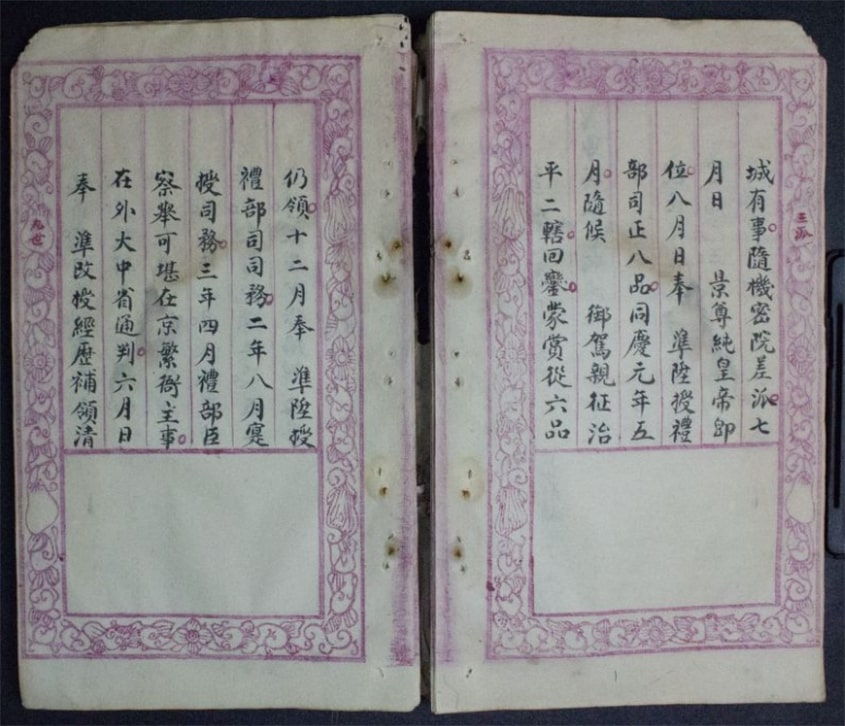 三派
城有事隨機密院差派七
月日 景尊純皇帝即
位八月日奉 準陞授禮
部司正八品同慶元年五
月隨候 御駕親征治
平二轄回鑾蒙賞從六品
仍領十二月奉 準陞授
禮部司司務二年八月寔
授司務三年四月禮部臣
察舉可堪在京繁衙主事
在外大中省通判六月日
奉 準改授經歷補領清
九世